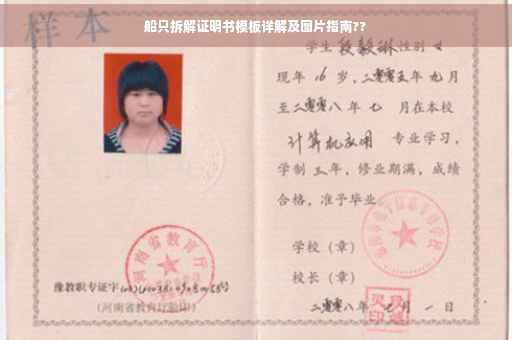 船只拆解证明书模板详解及图片指南??
样本
学生 段毅琳 性别 女
现年 16 岁，二零零五年九月
至二零零八年七 月在本校
计算机应用 专业学习，
学制 三年，修业期满，成绩
合格，准予毕业。
学校（章）
校长（章）
二零零八年七月一日
河南省教育厅
豫教职专证字
（河南省教育厅验印）